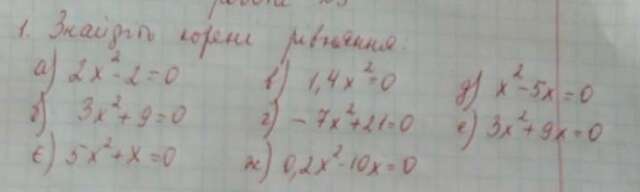 1. Знайдіть корені рівняння.
а) 2x²-2=0 в) 1,4x²=0 д) x²-5x=0
б) 3x²+9=0 г) -7x²+21=0 е) 3x²+9x=0
є) 5x²+x=0 ж) 0,2x²-10x=0